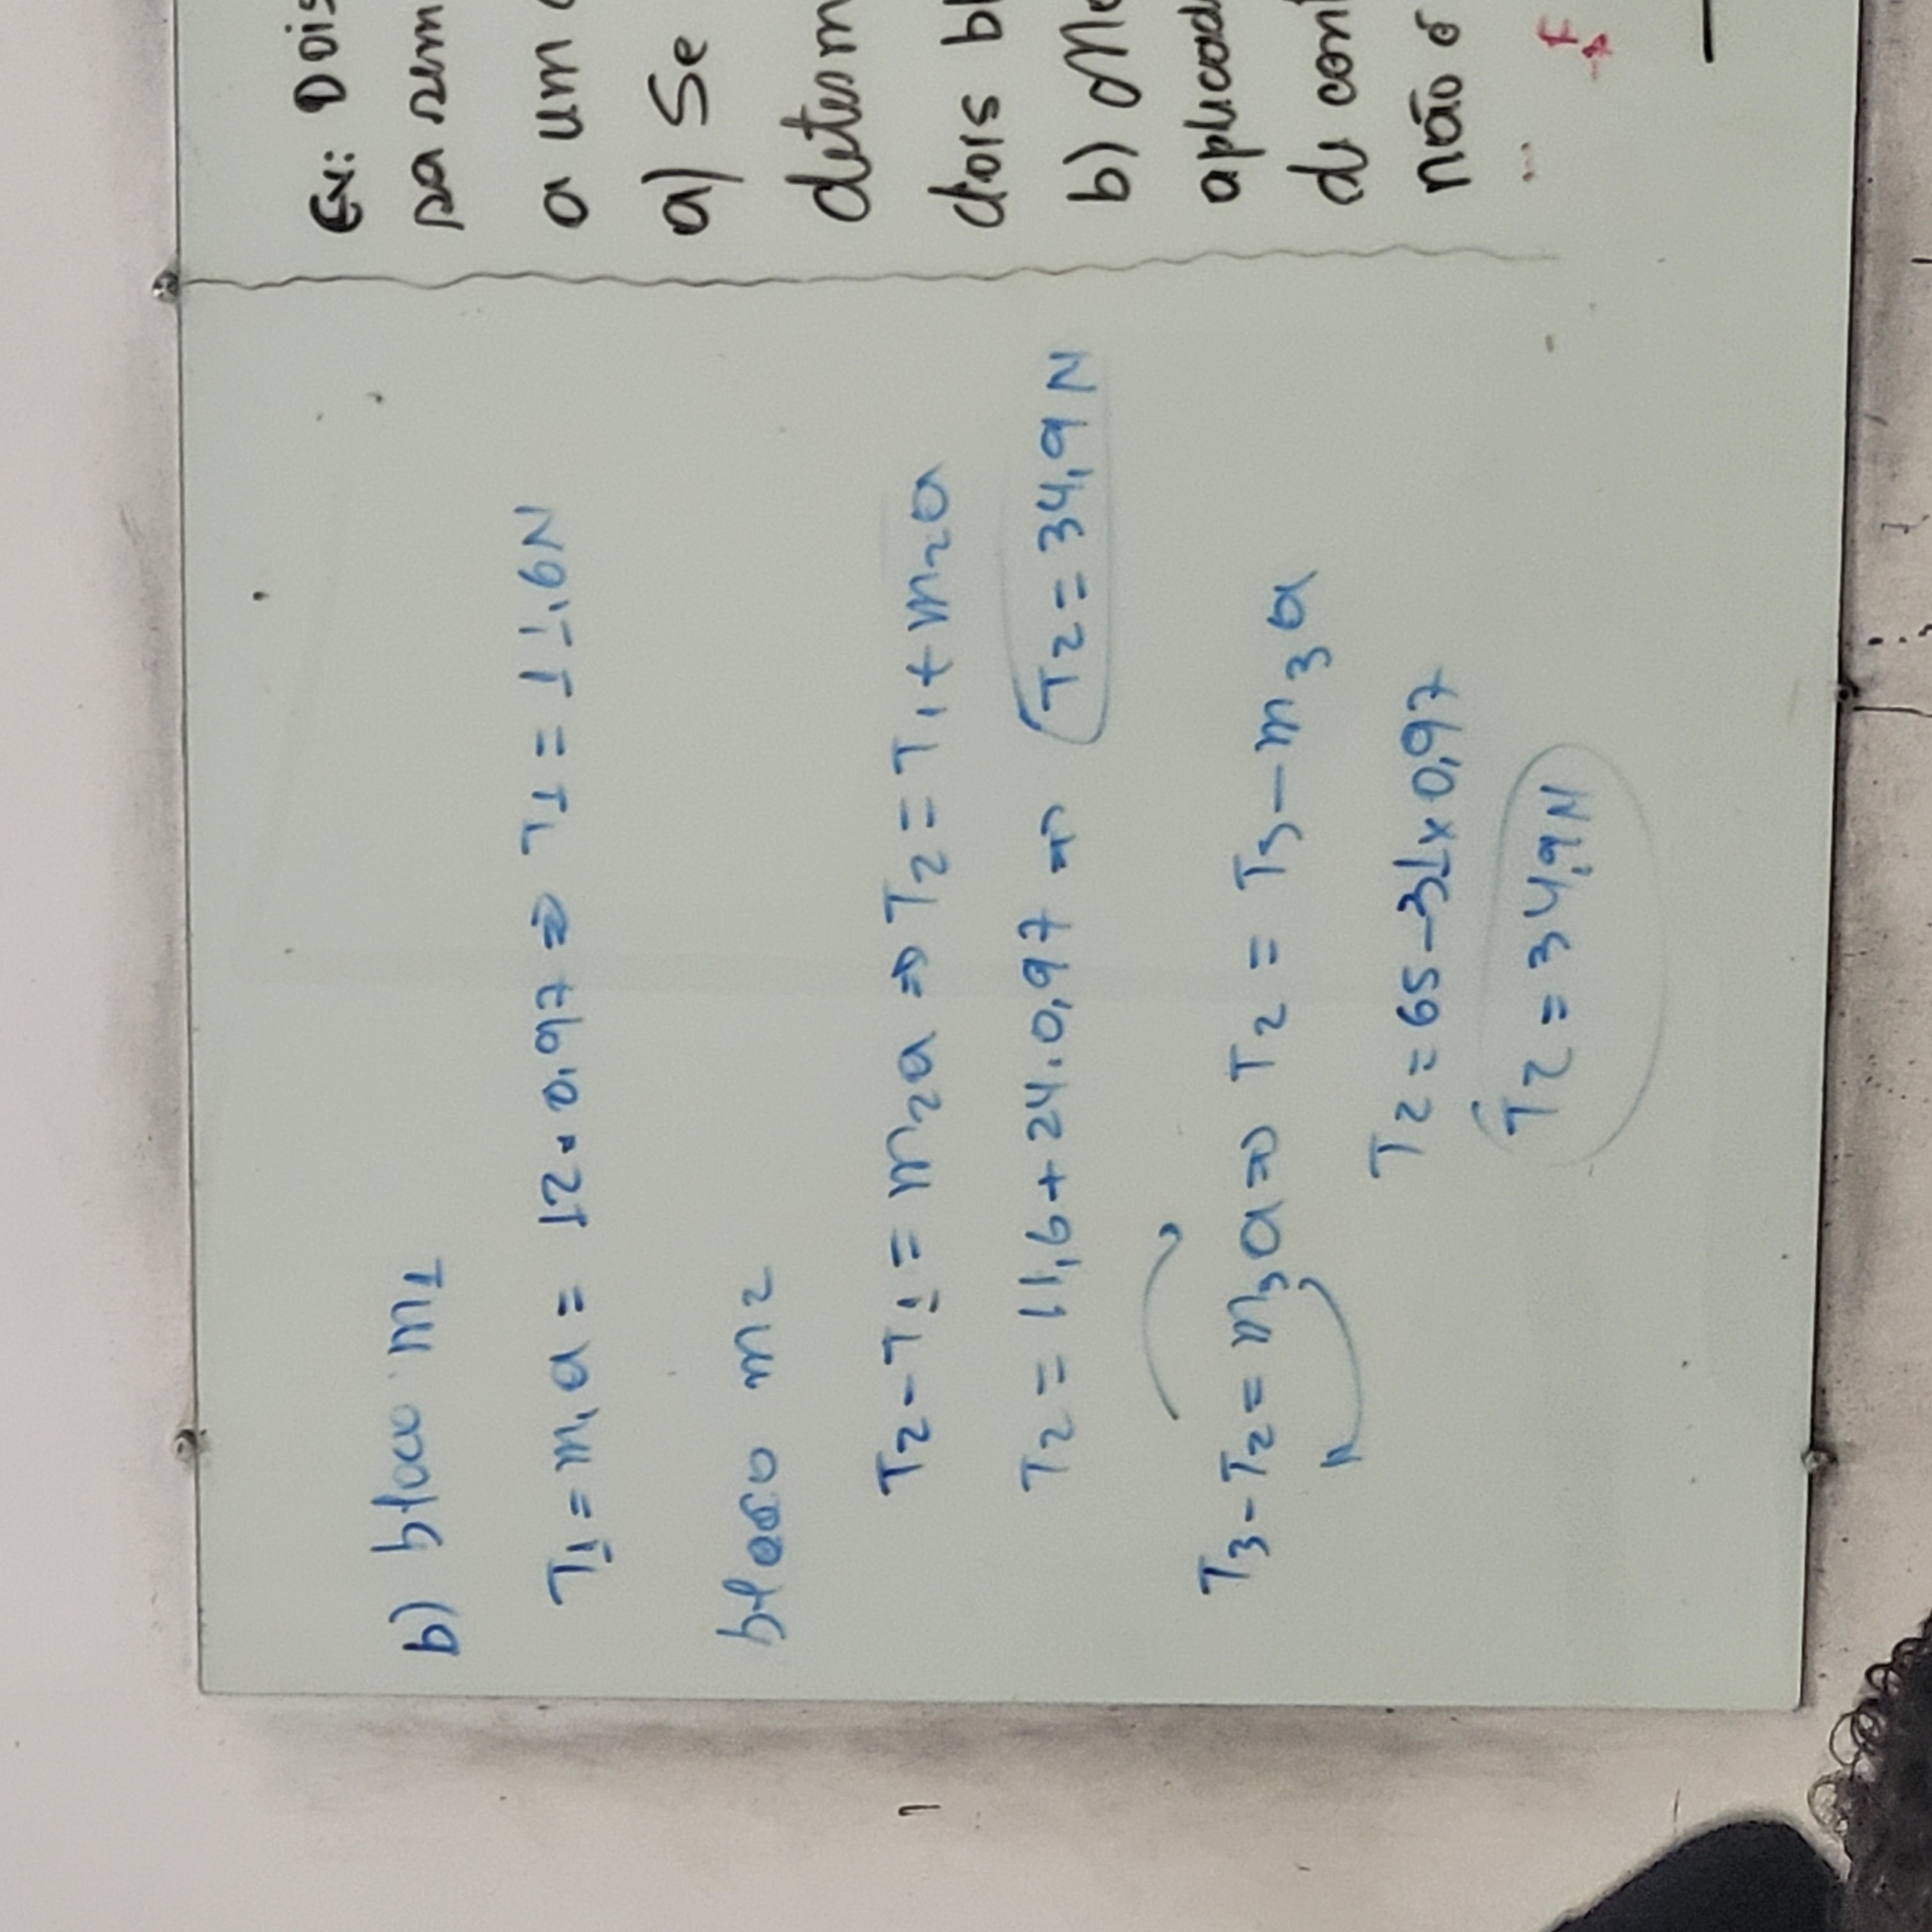 b) bloco m1
T1 = m1a = 12.0,97 ⇒ T1 = 11,6N
bloco m2
T2 - T1 = m2a ⇒ T2 = T1 + m2a
T2 = 11,6 + 24.0,97 ⇒ T2 = 34,9 N
T3 - T2 = m3a ⇒ T2 = T3 - m3a
T2 = 65 - 31x0,97
T2 = 34,9N
Ex: Dois
a um
a) Se
dois
b)
não é